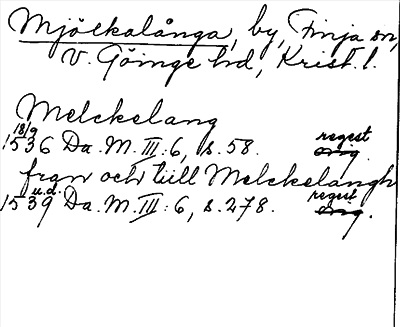 Mjölkalånga, by, Finja sn,
V. Göinge hd, Krist. l.
Melckelang
18/9
1536 Da. M. III: 6, s. 58. regest
orig.
fran och till Melckelangh
u.d.
1539 Da. M. III: 6, s. 278. regest
orig.